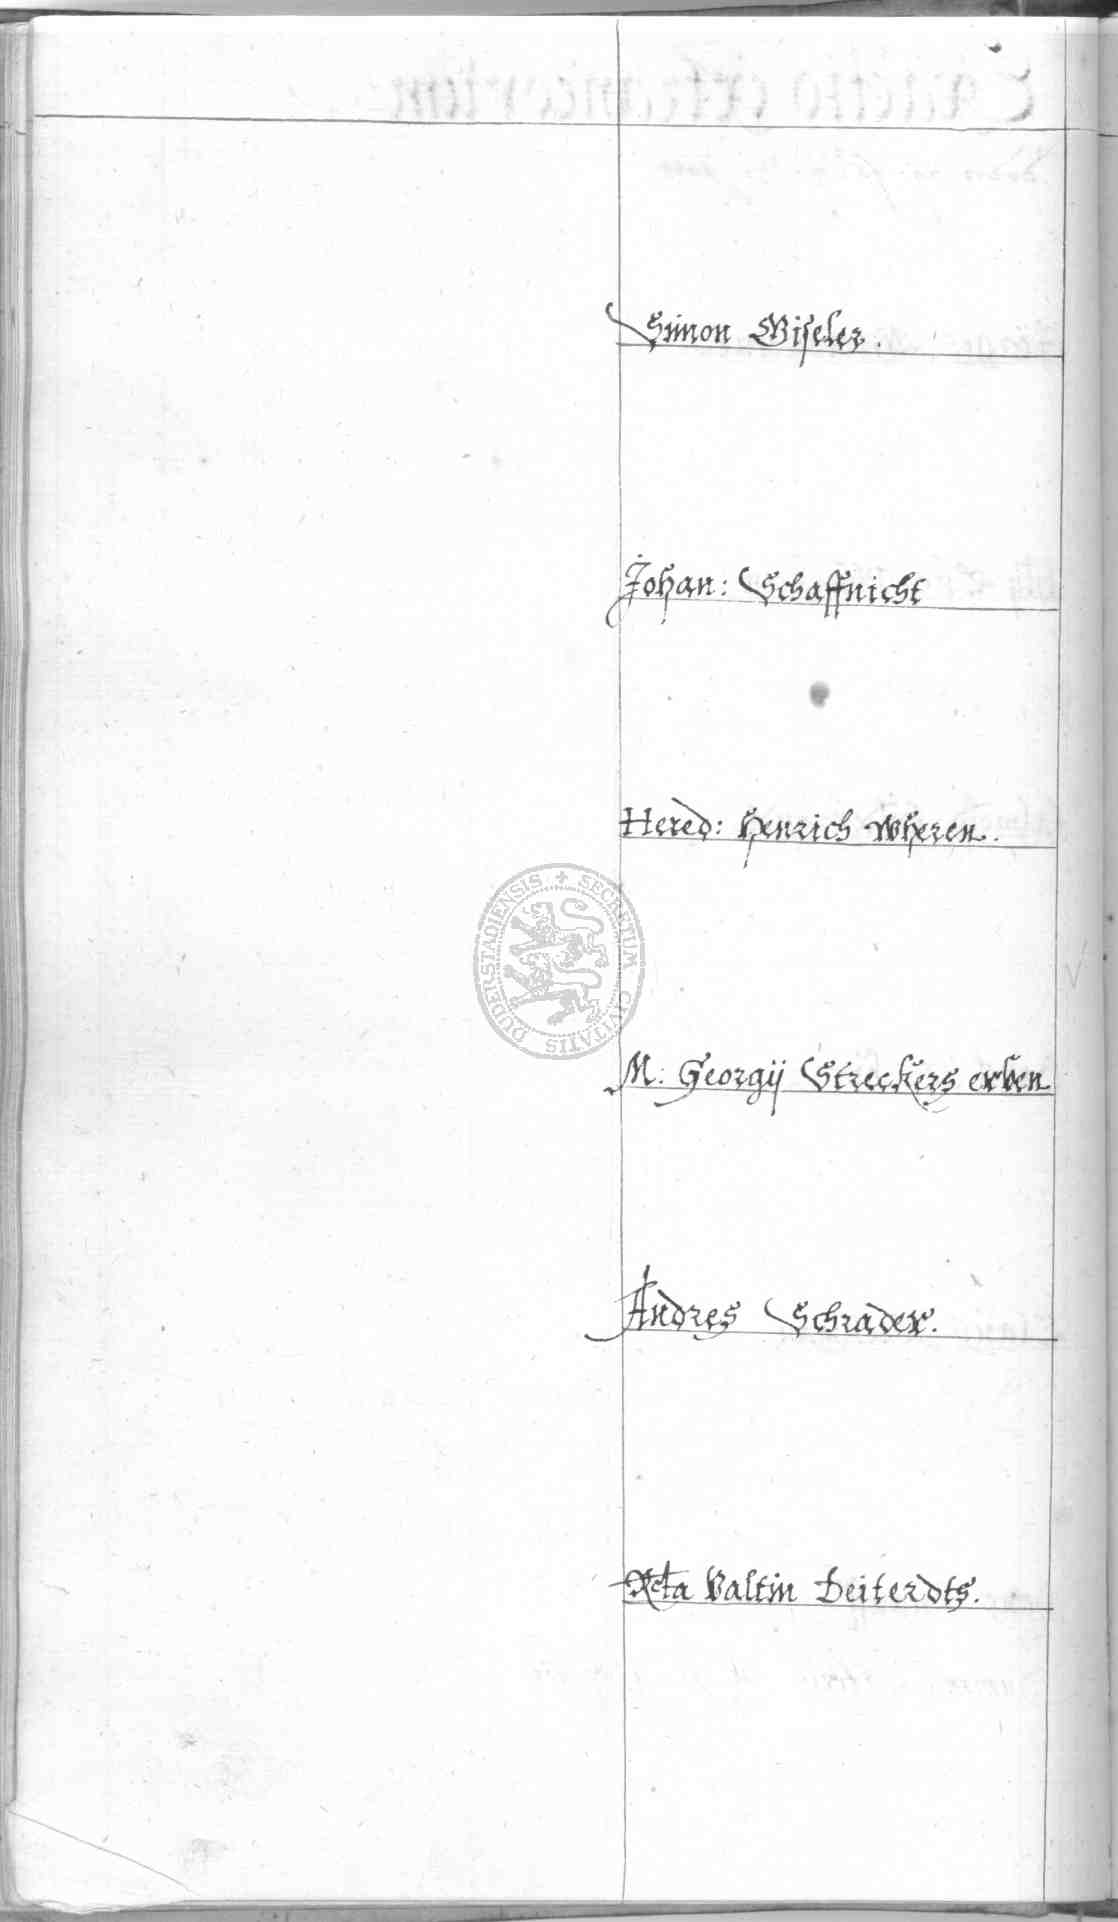 Simon Giseler.
Johan: Schaffnicht
Hered: Henrich Wheren.
SECRETUM CIVITATIS DUDERSTADIENSIS
M: Georgij Streckers erben
Andres Schrader.
Rcta Valtin Deiterdts.